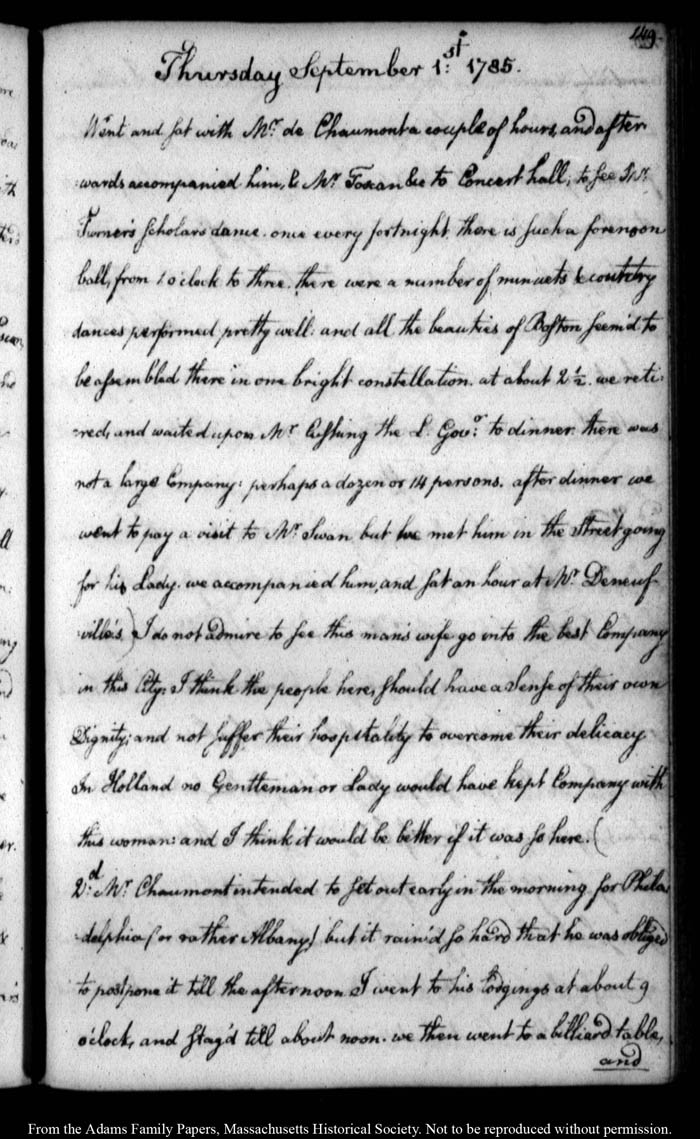 149.
Thursday September 1:st 1785.
Went and sat with Mr. de Chaumont a couple of hours, and after
wards accompanied him, & Mr. Toscan &c to Concert hall, to see Mr.
Turner's scholars dance. once every fortnight there is such a forenoon
ball, from 1 o'clock to three. there were a number of minuets & country
dances performed pretty well: and all the beauties of Boston seem'd to
be assembled there in one bright constellation. at about 2 1/2. we reti-
-red, and waited upon Mr. Cushing the L. Gov:r to dinner. there was
not a large Company: perhaps a dozen or 14 persons. after dinner we
went to pay a visit to Mr. Swan but we met him in the street going
for his Lady. we accompanied him, and sat an hour at Mr. Deneuf-
ville's) I do not admire to see this man's wife go into the best Company
in this City: I think the people here, should have a Sense of their own
Dignity; and not suffer their hospitality to overcome their delicacy.
In Holland no Gentleman or Lady would have kept Company with
this woman: and I think it would be better if it was so here. (
2:d Mr. Chaumont intended to set out early in the morning for Phila-
-delphia (or rather Albany) but it rain'd so hard that he was obliged
to postpone it till the afternoon I went to his lodgings at about 9
o'clock, and stay'd till about noon. we then went to a billiard table,
and
From the Adams Family Papers, Massachusetts Historical Society. Not to be reproduced without permission.